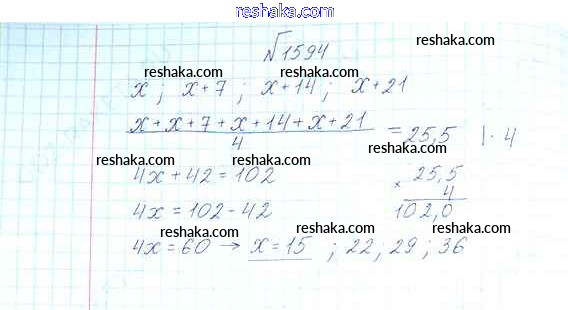 reshaka.com
№1594
reshaka.com
reshaka.com
x ; x+7 ; x+14 ; x+21
reshaka.com reshaka.com
x+x+7+x+14+x+21 / 4 = 25,5 | · 4
reshaka.com
reshaka.com reshaka.com
4x+42=102
25,5
× 4
102,0
reshaka.com
4x=102-42
reshaka.com
reshaka.com
4x=60 → x=15 ; 22 ; 29 ; 36
reshaka.com
reshaka.com
reshaka.com